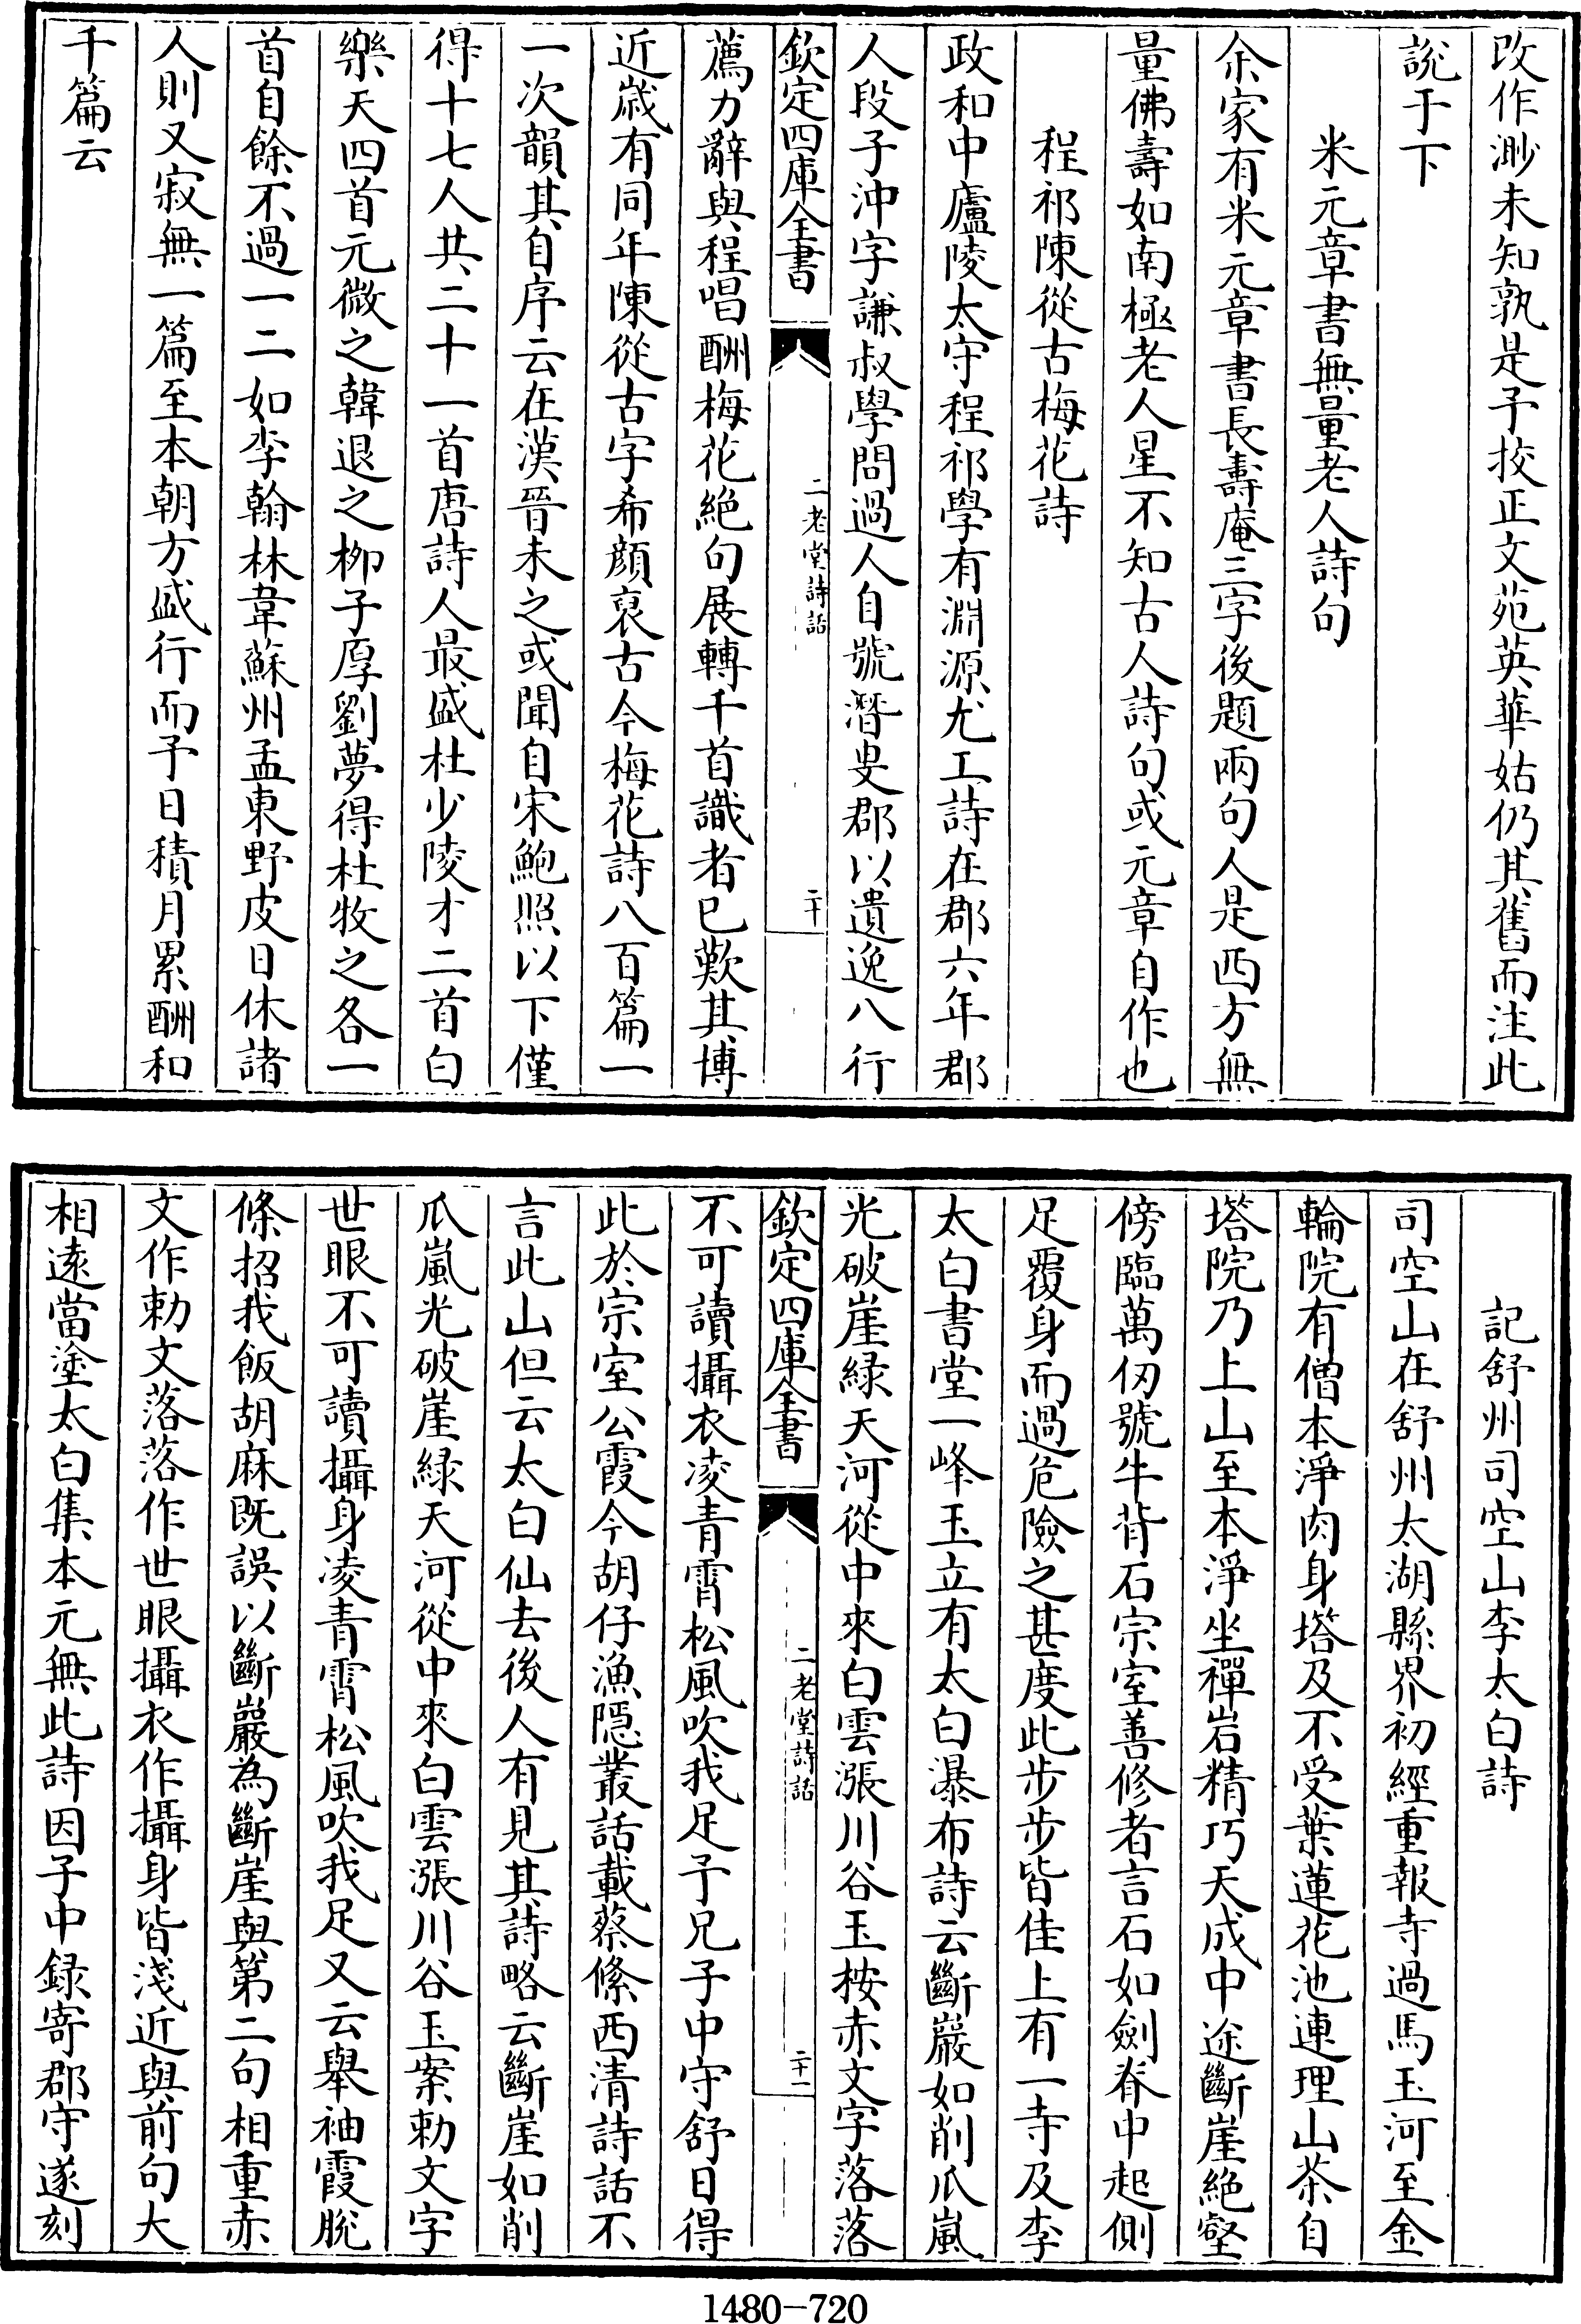 改作渺未知孰是予挍正文苑英華姑仍其舊而注此
說于下
米元章書無量老人詩句
余家有米元章書長壽庵三字後題兩句人是西方無
量佛壽如南極老人星不知古人詩句或元章自作也
程祁陳從古梅花詩
政和中廬陵太守程祁學有淵源尤工詩在郡六年郡
人段子沖字謙叔學問過人自號潛叟郡以遺逸八行
欽定四庫全書
二老堂詩話
二十
薦力辭與程唱酬梅花絕句展轉千首識者已歎其博
近歲有同年陳從古字希顔裒古今梅花詩八百篇一
一次韻其自序云在漢晉未之或聞自宋鮑照以下僅
得十七人共二十一首唐詩人最盛杜少陵才二首白
樂天四首元微之韓退之柳子厚劉夢得杜牧之各一
首自餘不過一二如李翰林韋蘇州孟東野皮日休諸
人則又寂無一篇至本朝方盛行而予日積月累酬和
千篇云
記舒州司空山李太白詩
司空山在舒州太湖縣界初經重報寺過馬玉河至金
輪院有僧本淨肉身塔及不受葉蓮花池連理山茶自
塔院乃上山至本淨坐禪岩精巧天成中途斷崖絕壑
傍臨萬仞號牛背石宗室善修者言石如劍脊中起側
足覆身而過危險之甚度此步步皆佳上有一寺及李
太白書堂一峰玉立有太白瀑布詩云斷巖如削瓜嵐
光破崖綠天河從中來白雲漲川谷玉桉赤文字落落
欽定四庫全書
二老堂詩話
二十一
不可讀攝衣凌青霄松風吹我足予兄子中守舒日得
此於宗室公霞今胡仔漁隱叢話載蔡絛西清詩話不
言此山但云太白仙去後人有見其詩略云斷崖如削
瓜嵐光破崖綠天河從中來白雲漲川谷玉案勅文字
世眼不可讀攝身凌青霄松風吹我足又云舉袖霞脫
條招我飯胡麻既誤以斷巖為斷崖與第二句相重赤
文作勅文落落作世眼攝衣作攝身皆淺近與前句大
相遠當塗太白集本元無此詩因子中録寄郡守遂刻
1480-720